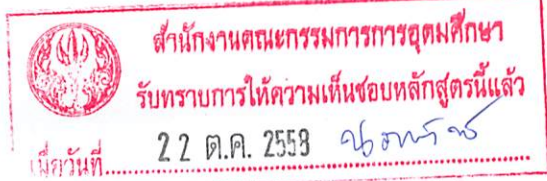 สำนักงานคณะกรรมการการอุดมศึกษา
รับทราบการให้ความเห็นชอบหลักสูตรนี้แล้ว
เมื่อวันที่ 22 ต.ค. 2559